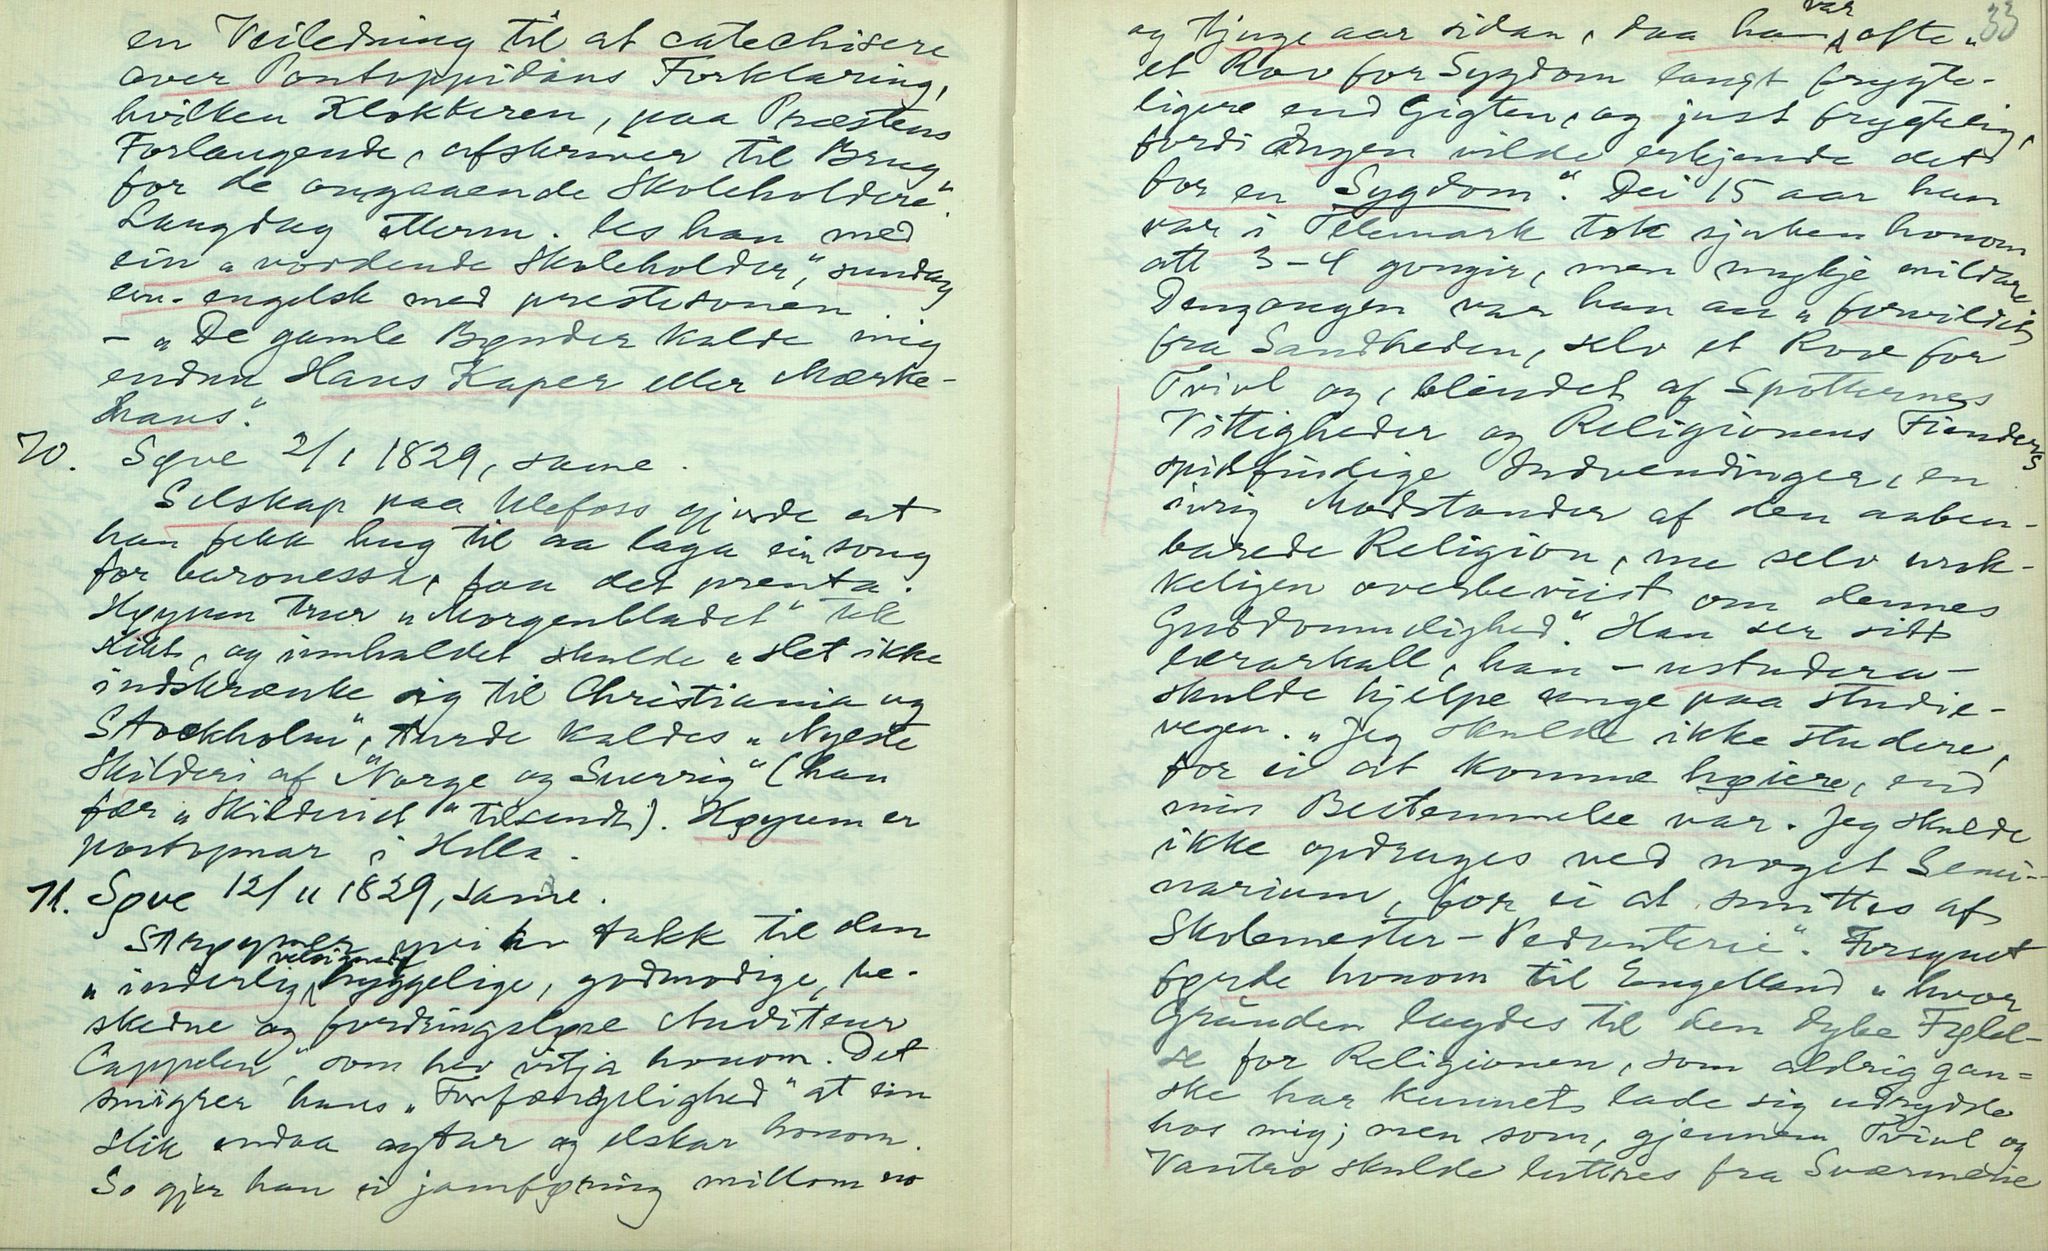 en Veiledning til at catechisere
over Pontoppidans Forklaring,
hvilken Klokkeren, paa Præstens
Forlangende, afskriver til Brug
for de angaaende Skoleholdere".
Laugdag etterm. les han med
ein "vordende Skoleholder", sundag
em. engelsk med prestesonen
- "De gamle Bønder kalde mig
endnu Hans Kaper eller Mærke-
hans".
70. Søve 2/1 1829, same.
Selskap paa Ulefoss gjorde at
han fekk hug til aa laga ein song
for baronessa, faa det prenta.
Høyum trur "Morgenbladet" tek
slikt, og innhaldet skulde "slet ikke
indskrænke sig til Christiania og
Stockholm", turde kaldes "Nyeste
Skilderi af "Norge og Sverrig" (han
fær "Skilderiet" tilsendt). Høyum er
postopnar i Holla.
71. Søve 12/11 1829, same.
Strøymer yvi av takk til den
"inderlig velsignede hyggelige, godmodige, be-
skedne og fordringsløse Auditeur
Cappelen", som hev vitja honom. Det
smigrer hans "Forfængelighed" at ein
slik endaa agtar og elskar honom.
So gjer han ei jamføring millom no
33
og tjuge aar sidan, daa han var ofte "
et Rov for Sygdom langt frygte-
ligere end Gigten, og just frygtelig,
fordi Ingen vilde erkjende det
for en Sygdom". Dei 15 aar han
var i Telemark tok sjuken honom
att 3-4 gongir, men mykje mildare
Dengangen var han au "forvildet
fra Sandheden, selv et Rov for
Tvivl og, blændet af Spotternes
Vittigheder og Religionens Fienders
spidsfindige Indvendinger, en
ivrig Modstander af den aaben-
barede Religion, nu selv urok-
keligen overbeviist om dennes
Guddommelighed". Han ser sitt
lærarkall, han - ustudera -
skulde hjelpe unge paa studie-
vegen. "Jeg skulde ikke studere,
for ei at komme høiere, end
min Bestemmelse var. Jeg skulde
ikke opdrages ved noget Semi-
narium, for ei at smittes af
Skolemester-Pedanterie". Forsynet
førde honom til Engelland "hvor
Grunden lagdes til den dybe Følel-
se for Religionen, som aldrig gan-
ske har kunnet lade sig udrydde
hos mig; men som, gjennem Tvivl og
Vantro skulde luttres fra Sværmerie